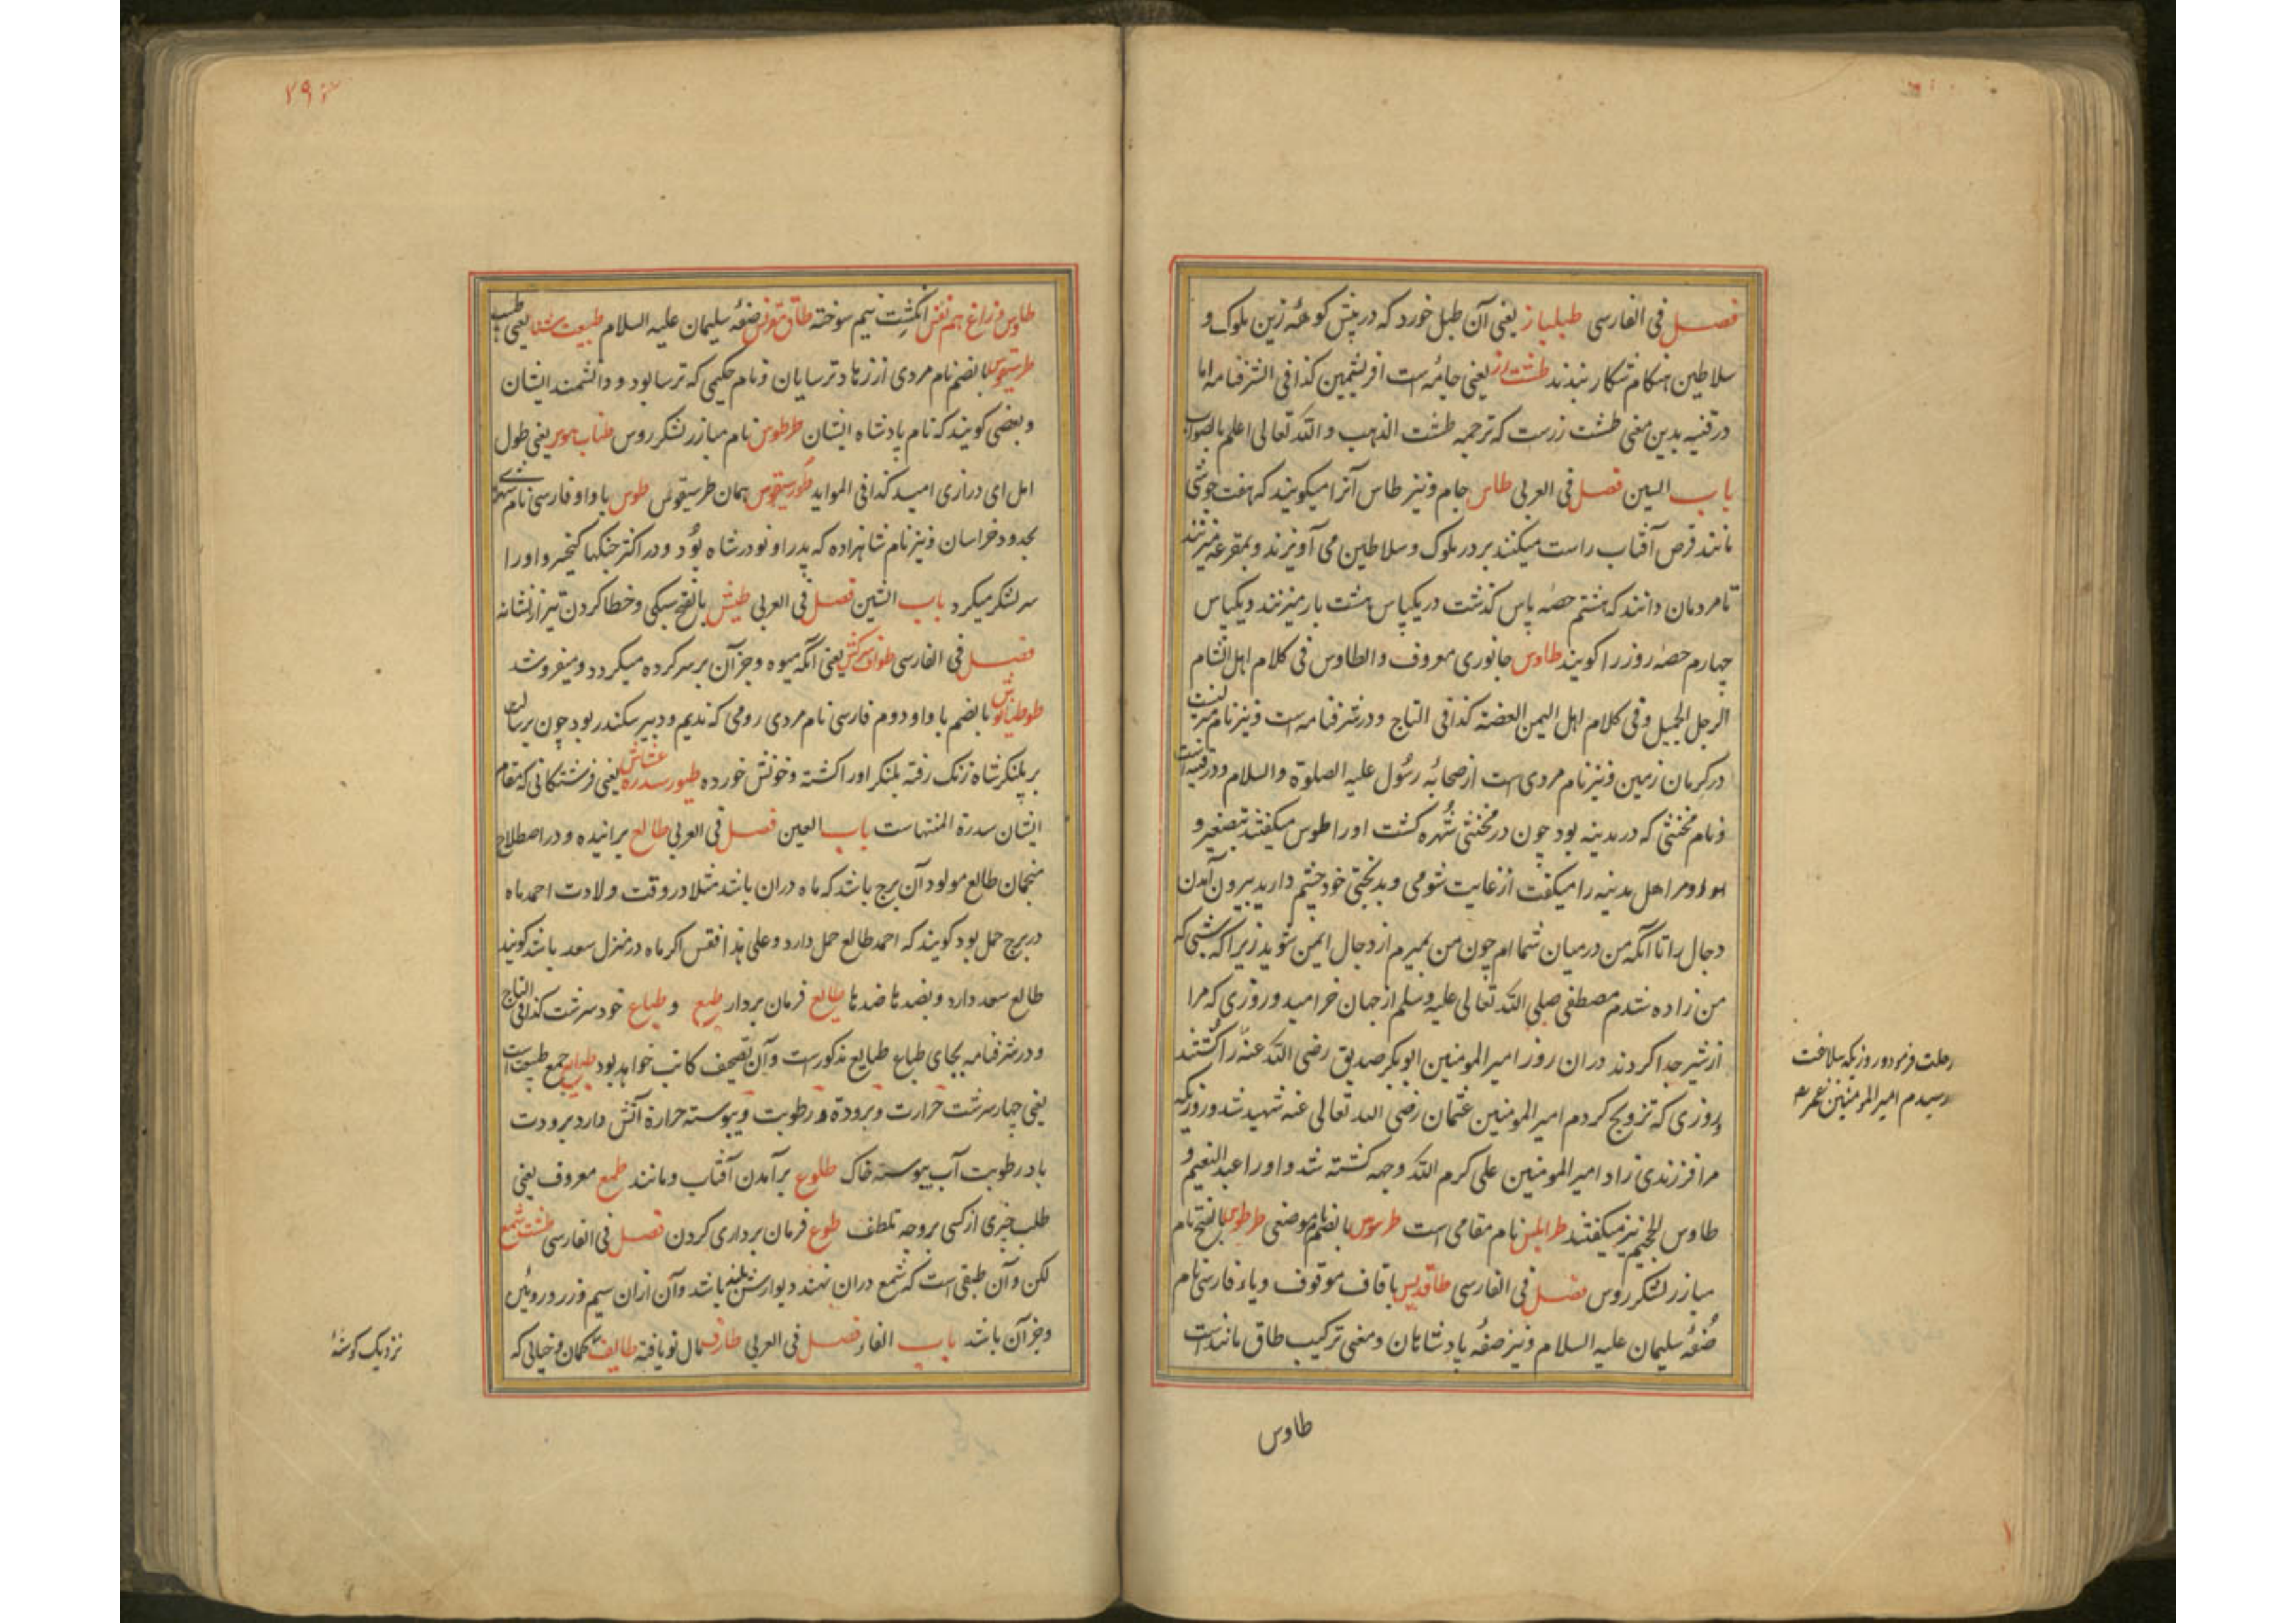 فصل فی الفارسی طبلباز یعنی آن طبل خورد که در پیش کوههٔ زین ملوک و
سلاطین هنکام شکار نبدند طشت زر یعنی جامهٔ است افریشمین کذا فی الشرفنامه اما
در قنیه بدین معنی طشت زرست که ترجمه طشت الذهب والله تعالی اعلم بالصواب
باب السین فصل فی العربی طاس جام و نیز طاس آنرا میکویند که هفت جوشی
مانند قرص آفتاب راست میکنند بر در ملوک و سلاطین می آویزند و بمقرعه میزنند
تا مردمان دانند که هشتم حصه پاس کذشت در یکپاس هشت بار میزنند و یکپاس
چهارم حصهٔ روز را کویند طاوس جانوری معروف و الطاوس فی کلام اهل الشام
الرجل الجمیل و فی کلام اهل الیمن الفضة کذا فی التاج و در شرفنامه است و نیز نام
در کرمان زمین و نیز نام مردی است از صحابهٔ رسول علیه الصلوة والسلام و در قنیه است
و نام مخنثی که در مدینه بود چون در مخنثی شهره کشت او را طوس میکفتند بتصغیر و
او مر اهل مدینه را میکفت از غایت شومی و بدبختی خود چشم دارید بیرون آمدن
دجال را تا آنکه من در میان شما ام چون من بمیرم از دجال ایمن شوید زیرا که شبی که
من زاده شدم مصطفی صلی الله تعالی علیه وسلم از جهان خرامید و روزی که مرا
از شیر جدا کردند در ان روز امیر المومنین ابوبکر صدیق رضی الله عنه را کشتند
و روزی که تزویج کردم امیر المومنین عثمان رضی الله تعالی عنه شهید شد و روزیکه
مرا فرزندی زاد امیر المومنین علی کرم الله وجهه کشته شد و او را عبد النعیم و
طاوس الجحیم نیز میکفتند طرابلس نام مقامی است طرسوس بالضم نام موضعی طرطوس بالفتح نام
مبارز لشکر روس فصل فی الفارسی طاقدیس با قاف موقوف و یاء فارسی نام
صفهٔ سلیمان علیه السلام و نیز صفهٔ پادشاهان و معنی ترکیب طاق مانند است
رحلت فرمود و روزیکه ببلاغت
رسیدم امیر المومنین عمر
طاوس
۲۹
طاوس و زاغ هم نفس انکشت نیم سوخته طاق مقرنس صفهٔ سلیمان علیه السلام یعنی
بالضم نام مردی از زهاد ترسایان و نام حکیمی که ترسا بود و دانشمند ایشان
و بعضی کویند که نام پادشاه ایشان طرطوس نام مبارز لشکر روس طناب هوس یعنی طول
امل ای درازی امید کذا فی المواید طورسیقوس همان طرسیقوس طوس با واو فارسی نام شهری
بحدود خراسان و نیز نام شاهزاده که پدر او نودر شاه بود و در اکثر جنکها کیخسرو او را
سر لشکر میکرد باب الشین فصل فی العربی طیش بالفتح سبکی و خطا کردن تیر از نشانه
فصل فی الفارسی طواف سرکش یعنی آنکه میوه و جز آن بر سر کرده میکردد و میفروشد
طوطیانوش بالضم با واو دوم فارسی نام مردی رومی که ندیم و دبیر سکندر بود چون برسالت
بر پلنکر شاه زنک رفته پلنکر او را کشته و خونش خورده طیور سدره یعنی فرشتکانی که مقام
ایشان سدرة المنتهاست باب العین فصل فی العربی طالع برآینده و در اصطلاح
منجمان طالع مولود آن برج باشد که ماه دران باشد مثلا در وقت ولادت احمد ماه
در برج حمل بود کویند که احمد طالع حمل دارد و علی هذا فقس اکر ماه در منزل سعد باشد کویند
طالع سعد دارد و بضدها ضدها طایع فرمان بردار طبع و طباع خود سرشت کذا فی التاج
و در شرفنامه بجای طباع طبایع مذکورست و آن تصحیف کاتب خواهد بود طبایع جمع طبیعت است
یعنی چهار سرشت حرارت و برودة و رطوبت و یبوسته حرارة آتش دارد برودت
باد رطوبت آب یبوسته خاک طلوع برآمدن آفتاب و مانند طمع معروف یعنی
طلب خبری از کسی بر وجه تلطف طوع فرمان برداری کردن فصل فی الفارسی طشت شمع
لکن و آن طبقی است که شمع دران نهند دیوارش بلند باشد و آن ازان سیم و زر و روئین
و جز آن باشد باب الفا فصل فی العربی طارف مال نو یافته طایف کمان و خیالی که
نزدیک کوشهٔ